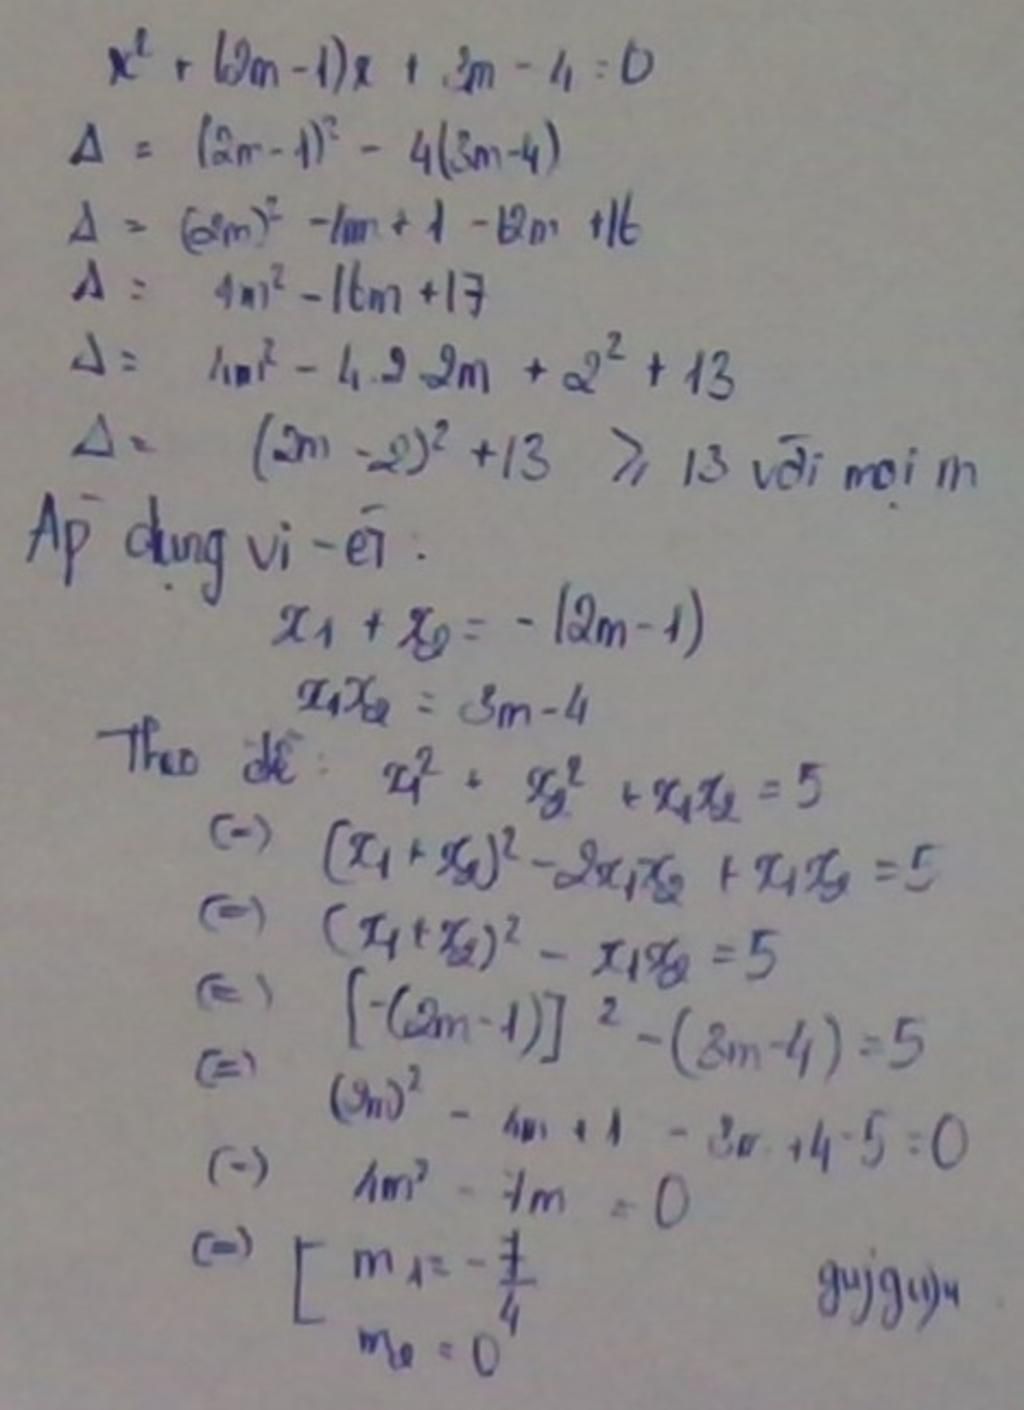 x² + (2m-1)x + 3m - 4 = 0
Δ = (2m-1)² - 4(3m-4)
Δ = (2m)² - 4m + 1 - 12m + 16
Δ = 4m² - 16m + 17
Δ = 4m² - 4.2 2m + 2² + 13
Δ = (2m - 2)² + 13 ≥ 13 với mọi m
Áp dụng vi-ét:
x₁ + x₂ = -(2m-1)
x₁x₂ = 3m-4
Theo đề: x₁² + x₂² + x₁x₂ = 5
(=) (x₁ + x₂)² - 2x₁x₂ + x₁x₂ = 5
(=) (x₁ + x₂)² - x₁x₂ = 5
(=) [-(2m-1)]² - (3m-4) = 5
(=) (2m)² - 4m + 1 - 3m + 4 - 5 = 0
(=) 4m² - 7m = 0
(=) [ m₁ = -7/4
m₂ = 0